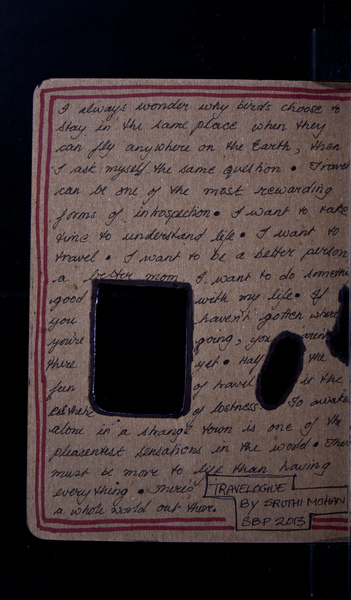 I always wonder why birds choose to
stay in the same place when they
can fly anywhere on the Earth, then
I ask myself the same question • Travel
can be one of the most rewarding
forms of introspection • I want to take
time to understand life • I want to
travel • I want to be a better person
a better mom I want to do
good with my life • If
you haven't gotten where
you're going, you aren
there yet • Half the
fun of travel is the
of lostness To awake
alone in a strange town is one of the
pleasentest sensations in the world •
must be more to life than having
everything • There's
a whole world out there.
TRAVELOGUE
BY SRUTHI MOHAN
SBP 2013